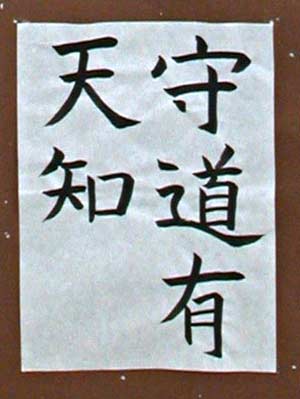 守道有
天知